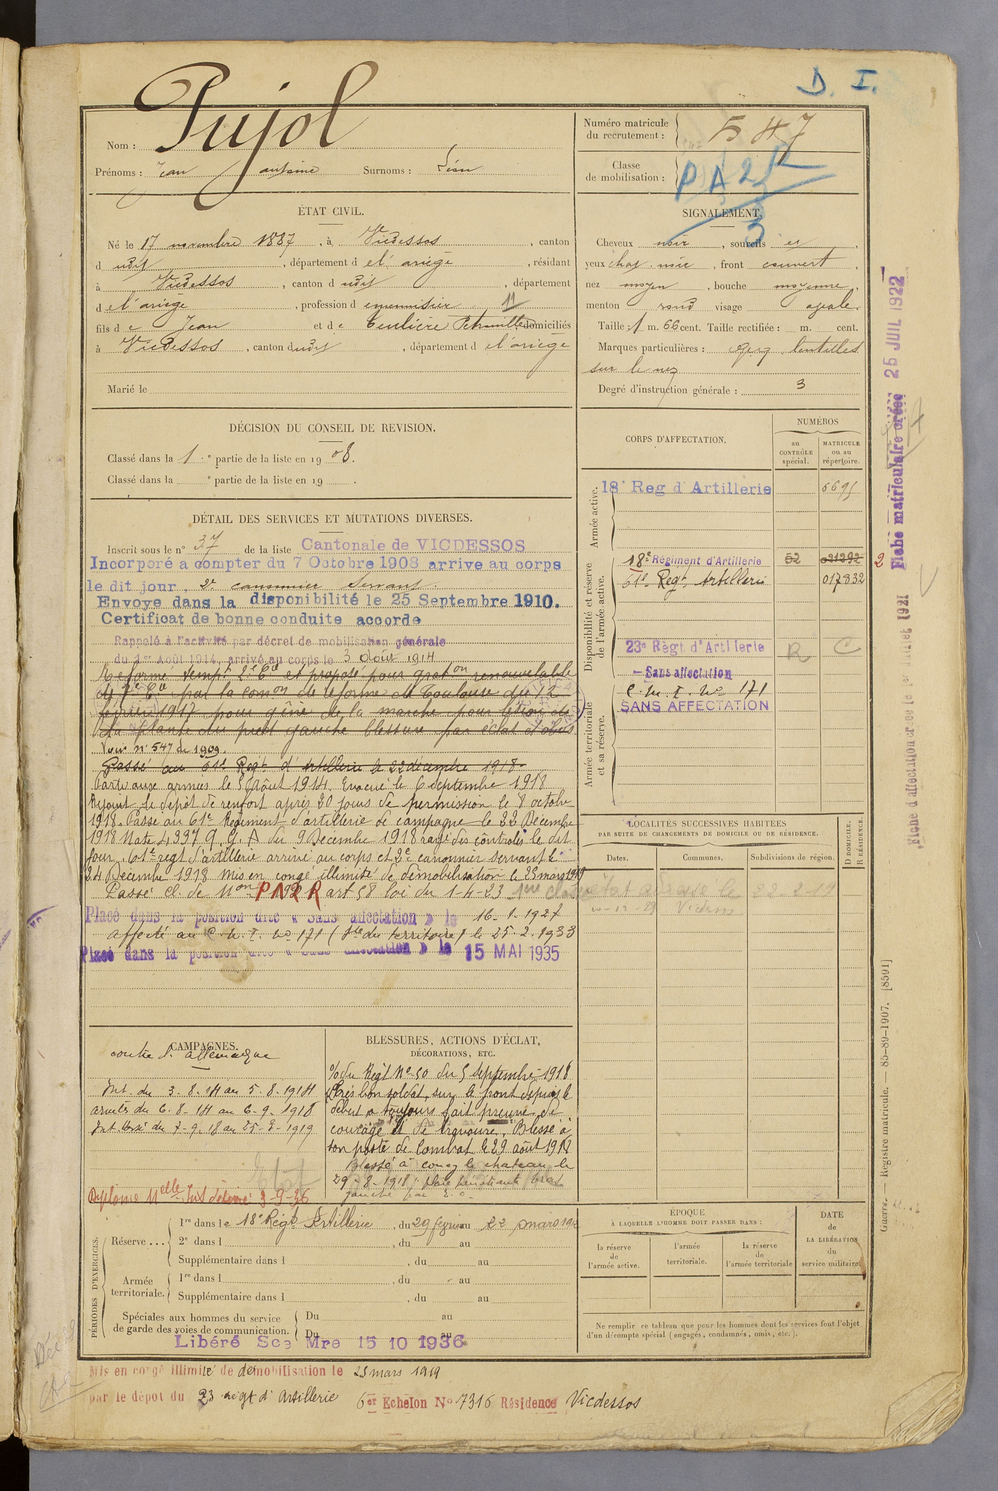 D. I.
Nom : Pujol
Prénoms : Jean antoine Surnoms : Léon
Numéro matricule du recrutement : 547
Classe de mobilisation : P A 2 R
3
ÉTAT CIVIL.
Né le 17 novembre 1887, à Vicdessos, canton
d udit, département de l'ariège, résidant
à Vicdessos, canton d udit, département
de l'ariège, profession de menuisier 11
fils de Jean et de Teulière Pétronille domiciliés
à Vicdessos, canton dudit, département de l'ariège
Marié le
SIGNALEMENT.
Cheveux noir, sourcils id
yeux chat. noir, front couvert,
nez moyen, bouche moyenne,
menton rond visage ovale.
Taille : 1 m. 66 cent. Taille rectifiée : m. cent.
Marques particulières : lentilles
sur le nez
Degré d'instruction générale : 3
DÉCISION DU CONSEIL DE REVISION.
Classé dans la 1re partie de la liste en 1908.
Classé dans la e partie de la liste en 19 .
DÉTAIL DES SERVICES ET MUTATIONS DIVERSES.
Inscrit sous le n° 37 de la liste Cantonale de VICDESSOS
Incorporé a compter du 7 Octobre 1908 arrive au corps
le dit jour, 2e canonnier servant.
Envoye dans la disponibilité le 25 Septembre 1910.
Certificat de bonne conduite accorde
Rappelé à l'activité par décret de mobilisation générale
du 1er Août 1914, arrivé au corps le 3 Août 1914
Réformé tempre 2e Cie et proposé pour graton renouvelable
de 7e Cie par la conon de réforme de Toulouse du 12
février 1917 pour gêne de la marche pour lésion de
la plante du pied gauche blessure par éclat d'obus
Voir n° 547 de 1909.
Passé au 61e Regt d'Artillerie le 22 décembre 1918
Parti aux armées le 6 Août 1914. Evacué le 6 septembre 1918
Rejoint le dépôt de renfort après 20 jours de permission le 8 octobre
1918. Passé au 61e Régiment d'artillerie de campagne le 22 Décembre
1918 Note 4397 G. Q. A du 9 Décembre 1918 rayé des contrôles le dit
jour. 61e regt d'artillerie arrivé au corps et 2e canonnier servant le
24 Décembre 1918 mis en congé illimité de démobilisation le 25 mars 1919
Passé cl. de Mon P A 2 R art 58 loi du 1-4-23
Placé dans la position dite « Sans affectation » le 16-1-1927
affecté au C. M. I. No 171 (Sté du territoire) le 25-2-1933
Placé dans la position dite « Sans affectation » le 15 MAI 1935
CORPS D'AFFECTATION.
NUMÉROS
au CONTRÔLE spécial.
MATRICULE ou au répertoire.
Armée active.
18e Reg d'Artillerie 6695
Disponibilité et réserve de l'armée active.
18e Régiment d'Artillerie 52 021292
61e Regt Artillerie 017832
23e Régt d'Artillerie R C
Sans affectation
C. M. I. No 171
SANS AFFECTATION
Armée territoriale et sa réserve.
LOCALITÉS SUCCESSIVES HABITÉES
PAR SUITE DE CHANGEMENTS DE DOMICILE OU DE RÉSIDENCE.
Dates.
Communes.
Subdivisions de région.
D DOMICILE. R RÉSIDENCE.
22-2-19
Vicdessos
Fiche matriculaire créée 25 JUIL 1922
2
CAMPAGNES.
contre l'allemagne
Int. du 3-8-14 au 5-8-1914
armées du 6-8-14 au 6-9-1918
Int. blessé du 7-9-18 au 25-3-1919
Diplôme Melle Int délivré 3-9-36
BLESSURES, ACTIONS D'ÉCLAT,
DÉCORATIONS, ETC.
O/ du Régt No 50 du 5 septembre 1918
Très bon soldat, sur le front depuis le
début a toujours fait preuve de
courage et de bravoure, Blessé à
son poste de combat le 29 août 1918
Blessé à coucy le chateau le
29-8-1918
PÉRIODES D'EXERCICES.
Réserve...
1re dans le 18e Régt Artillerie, du 29 février au 22 mars 1912
2e dans l , du au
Supplémentaire dans l du au
Armée territoriale.
1re dans l , du au
Supplémentaire dans l , du au
Spéciales aux hommes du service de garde des voies de communication.
Du au
Du au
Libéré Sce Mre 15 10 1936
ÉPOQUE
À LAQUELLE L'HOMME DOIT PASSER DANS :
la réserve de l'armée active.
l'armée territoriale.
la réserve de l'armée territoriale
DATE de LA LIBÉRATION du service militaire.
Ne remplir ce tableau que pour les hommes dont les services font l'objet
d'un décompte spécial (engagés, condamnés, omis, etc.).
Guerre. — Registre matricule. — 85-89-1907. [8591]
Mis en congé illimité de démobilisation le 25 mars 1919
par le dépot du 23 regt d'Artillerie 6er Echelon No 7316 Résidence Vicdessos